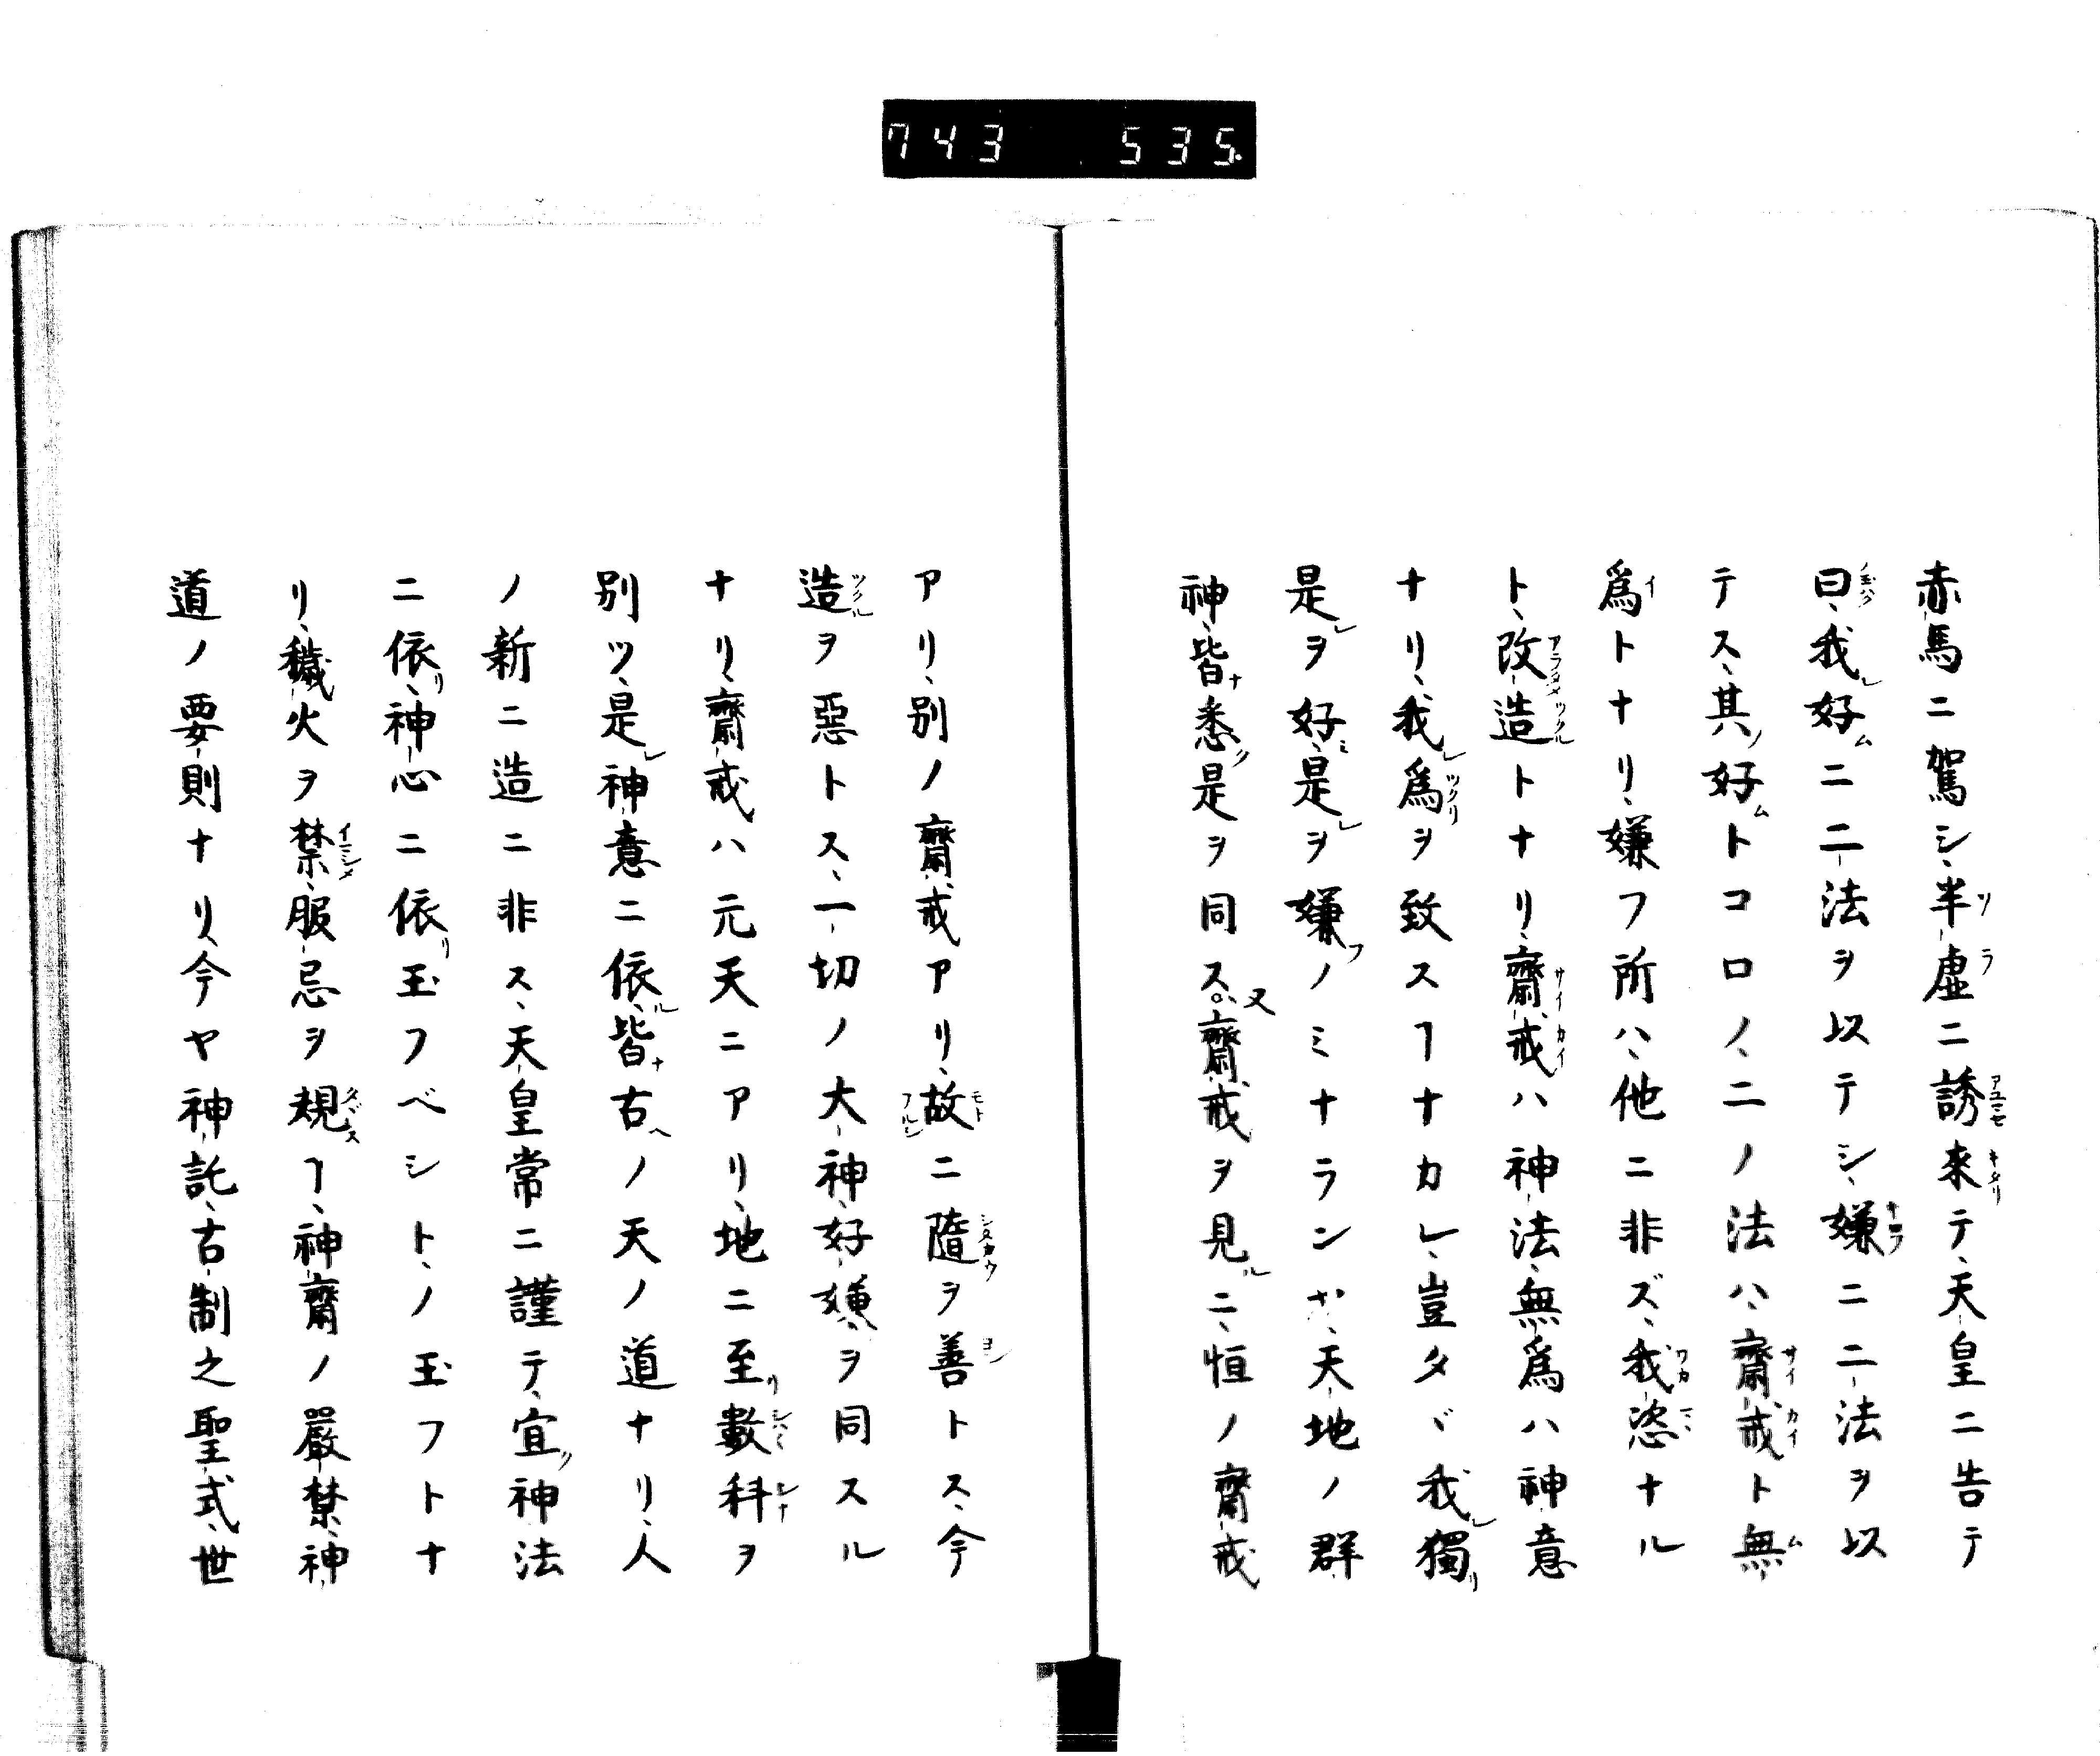 743 535.
赤馬ニ駕シ、半虚ニ誘来テ、天皇ニ告テ
曰、我好ムニ二法ヲ以テシ、嫌ニ二法ヲ以
テス、其ノ好ムトコロノ、二ノ法ハ、齋戒ト無
爲トナリ、嫌フ所ハ、他ニ非ズ、我恣ナル
ト、改造トナリ、齋戒ハ神法、無爲ハ神意
ナリ、我レ爲ヲ致スヿナカレ、豈タヾ我レ獨リ
是レヲ好ミ、是レヲ嫌フノミナランヤ、天地ノ群
神、皆ナ悉ク是ヲ同ス。又齋戒ヲ見ルニ、恒ノ齋戒
アリ、別ノ齋戒アリ、故ニ隨ヲ善トス、今
造ヲ惡トス、一切ノ大神、好嫌ヲ同スル
ナリ、齋戒ハ元天ニアリ、地ニ至リ數科ヲ
別ツ、是レ神意ニ依ル、皆ナ古ヘノ天ノ道ナリ、人
ノ新ニ造ニ非ス、天皇常ニ謹テ、宜ク神法
ニ依リ、神心ニ依リ玉フベシト、ノ玉フトナ
リ、穢火ヲ禁、服忌ヲ規ヿ、神齋ノ嚴禁、神
道ノ要則ナリ、今ヤ神託、古制之聖式、世